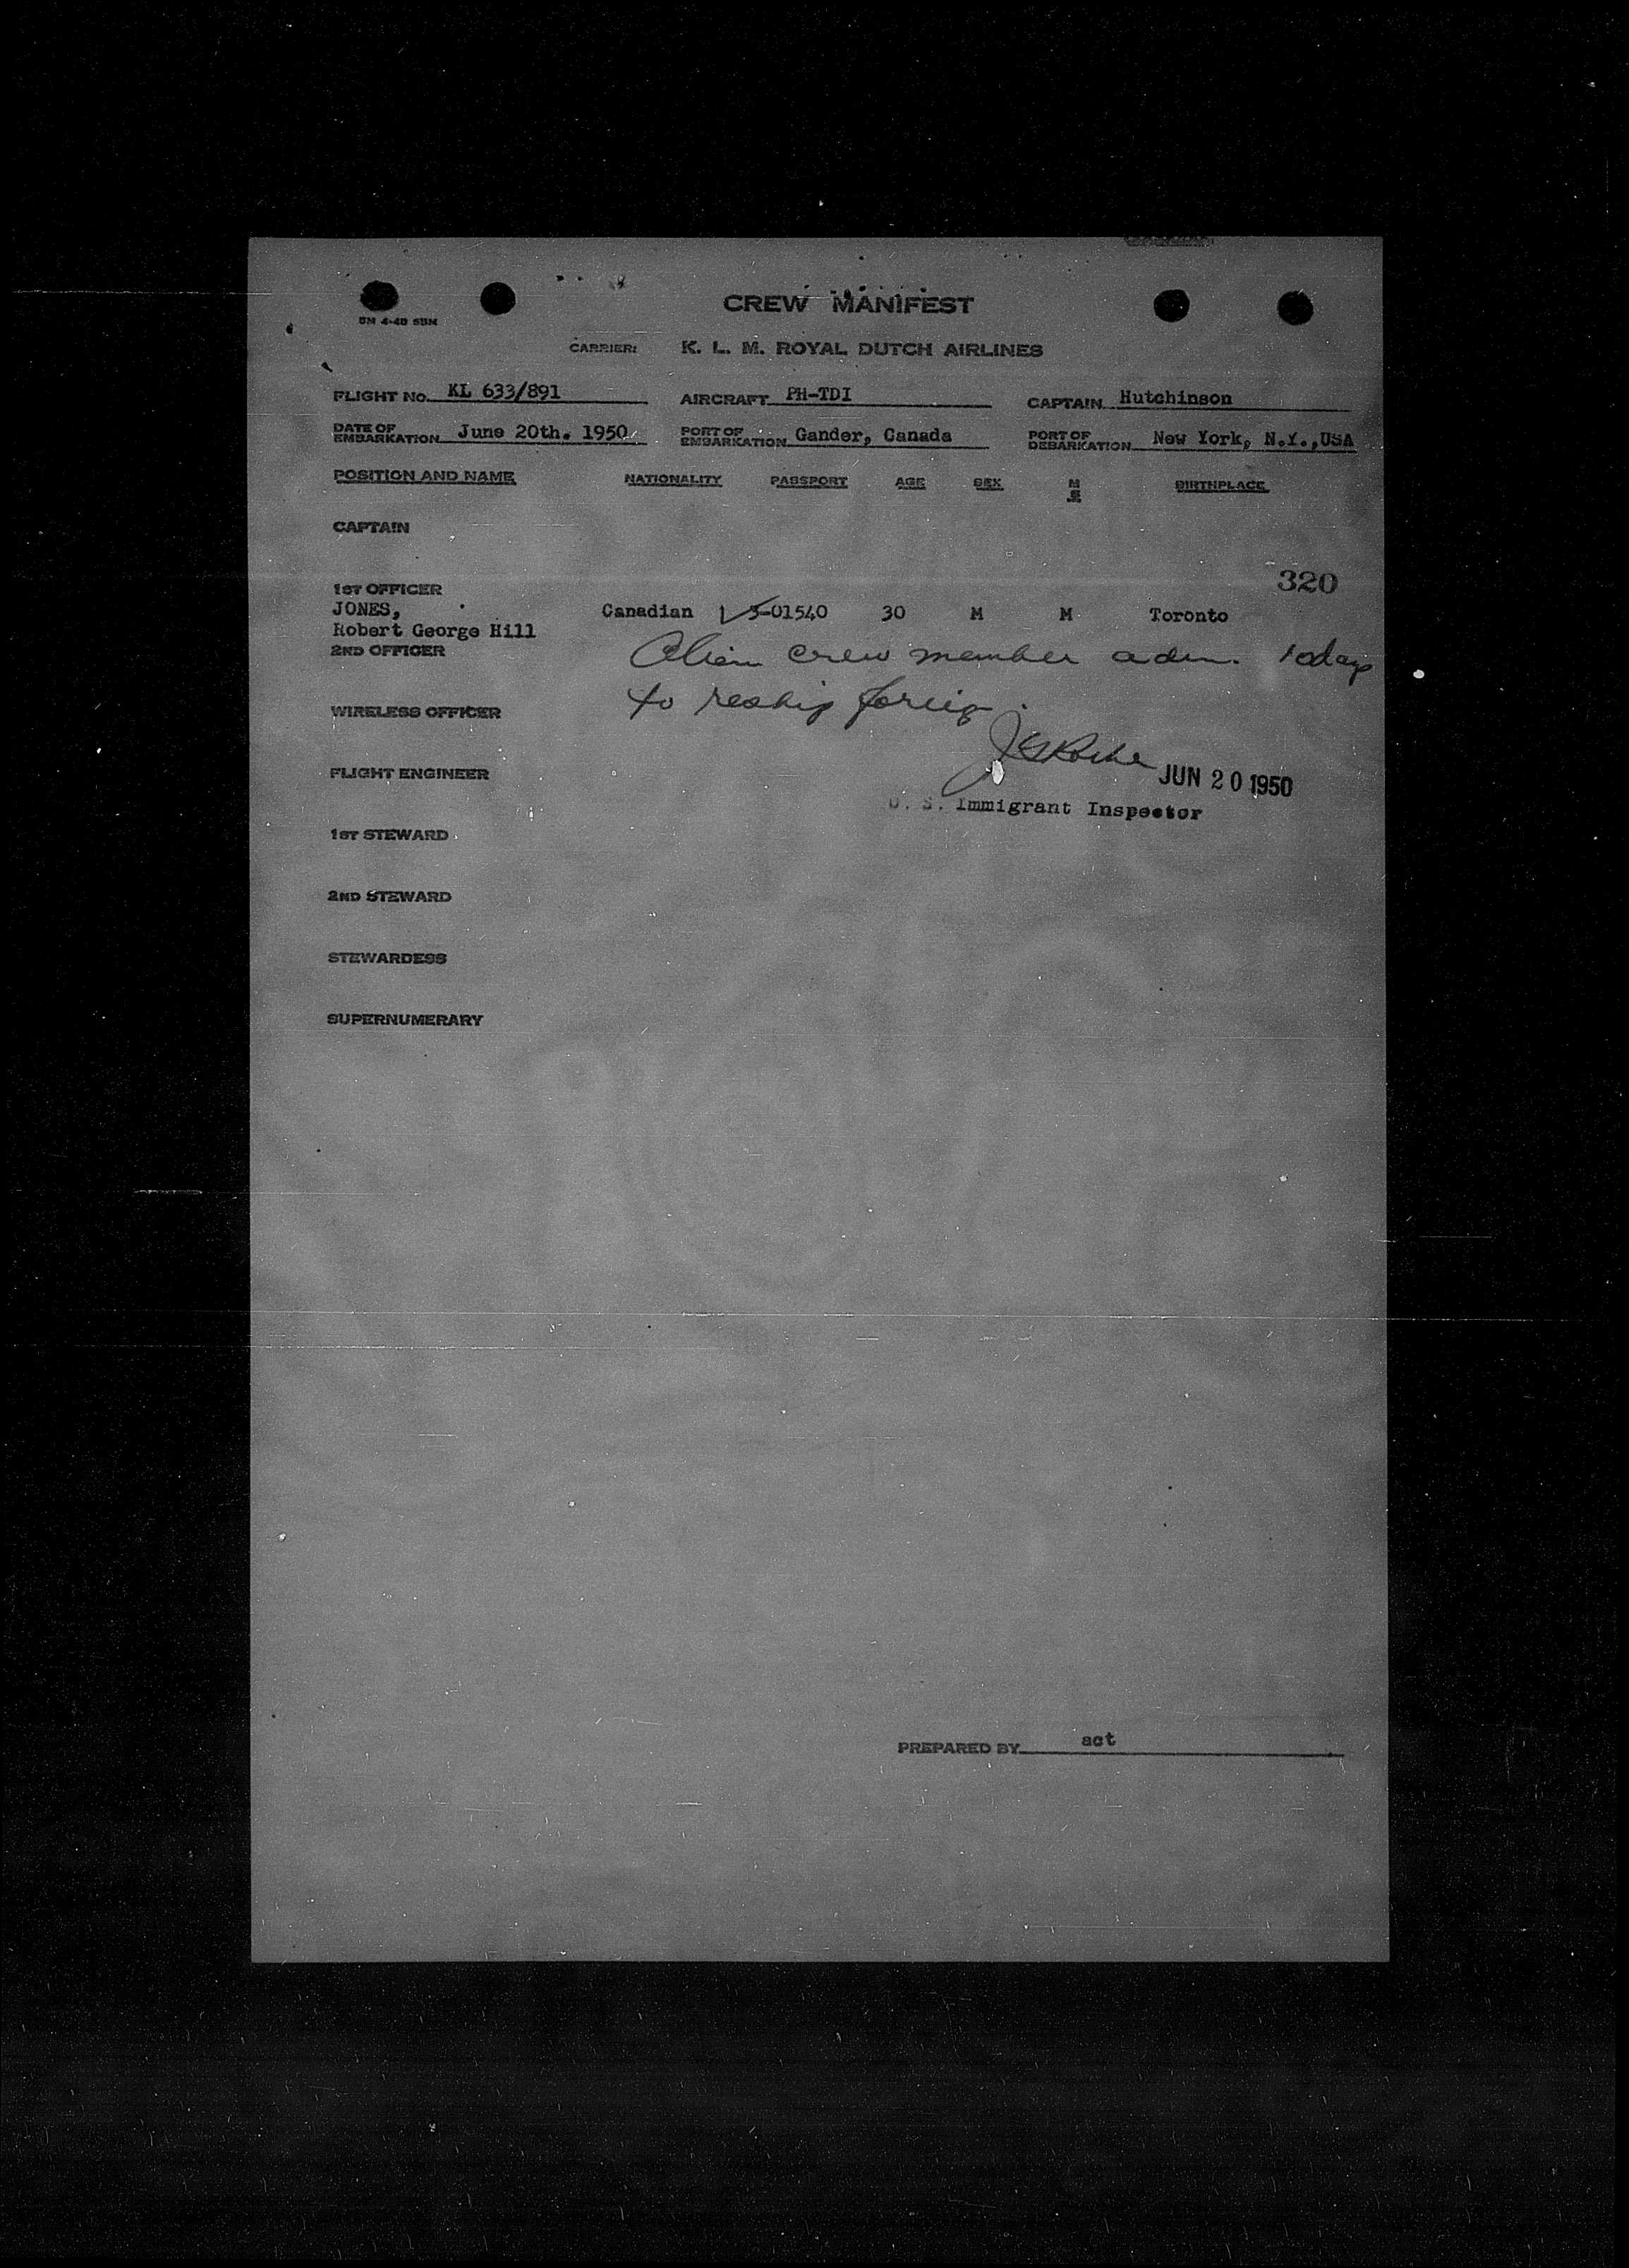 CREW MANIFEST
CARRIER: K. L. M. ROYAL DUTCH AIRLINES
FLIGHT NO. KL 633/891 AIRCRAFT PH-TDI CAPTAIN Hutchinson
DATE OF EMBARKATION June 20th. 1950 PORT OF EMBARKATION Gander, Canada PORT OF DEBARKATION New York, N.Y.,USA
POSITION AND NAME NATIONALITY PASSPORT AGE SEX M S BIRTHPLACE
CAPTAIN
320
1ST OFFICER
JONES, Canadian 5-01540 30 M M Toronto
Robert George Hill
2ND OFFICER
Alien crew member adm. 10 days
to reship foreign.
WIRELESS OFFICER
FLIGHT ENGINEER
JUN 20 1950
U. S. Immigrant Inspector
1ST STEWARD
2ND STEWARD
STEWARDESS
SUPERNUMERARY
PREPARED BY act